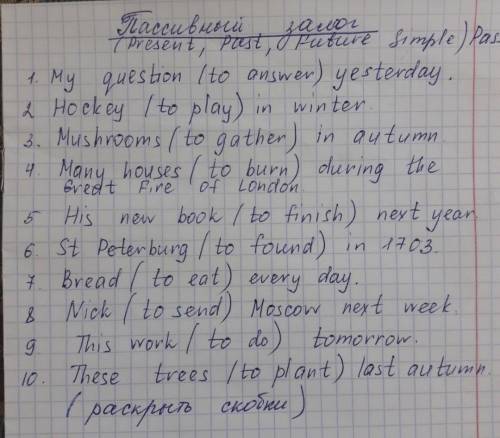 Пассивный залог
(Present, Past, Future Simple) Pas
1. My question (to answer) yesterday.
2 Hockey (to play) in winter.
3. Mushrooms (to gather) in autumn
4. Many houses (to burn) during the
Great Fire of London
5 His new book (to finish) next year.
6 St Peterburg (to found) in 1703.
7. Bread (to eat) every day.
8 Nick (to send) Moscow next week.
9 This work (to do) tomorrow.
10. These trees (to plant) last autumn.
(раскрыть скобки)